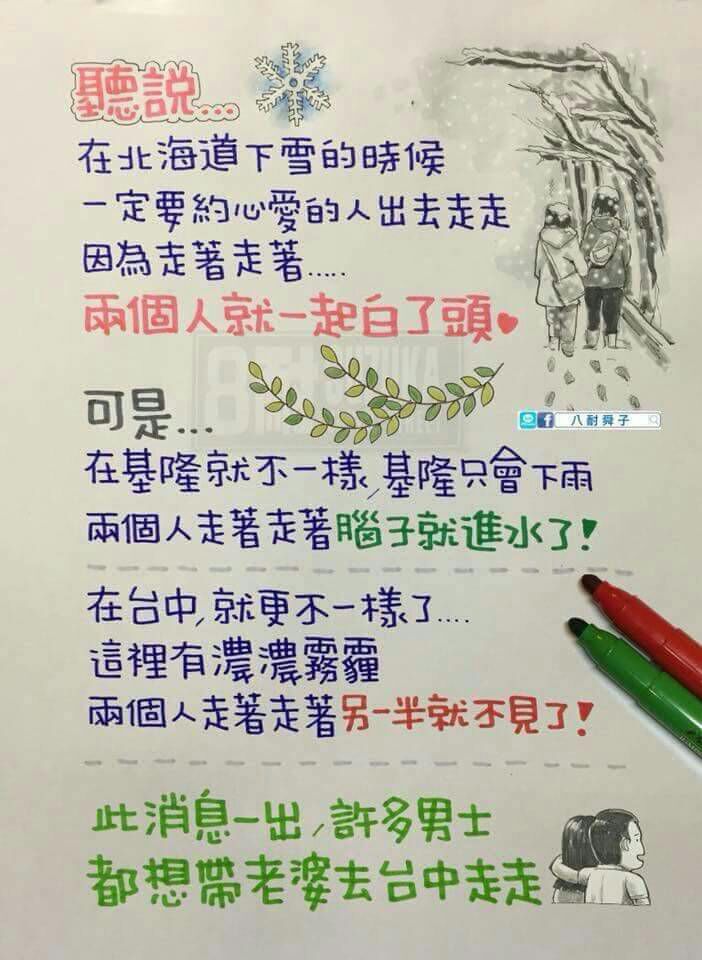 聽說...
在北海道下雪的時候
一定要約心愛的人出去走走
因為走著走著.....
兩個人就一起白了頭
可是...
八耐舜子
在基隆就不一樣,基隆只會下雨
兩個人走著走著腦子就進水了!
在台中,就更不一樣了....
這裡有濃濃霧霾
兩個人走著走著另一半就不見了!
此消息一出,許多男士
都想帶老婆去台中走走